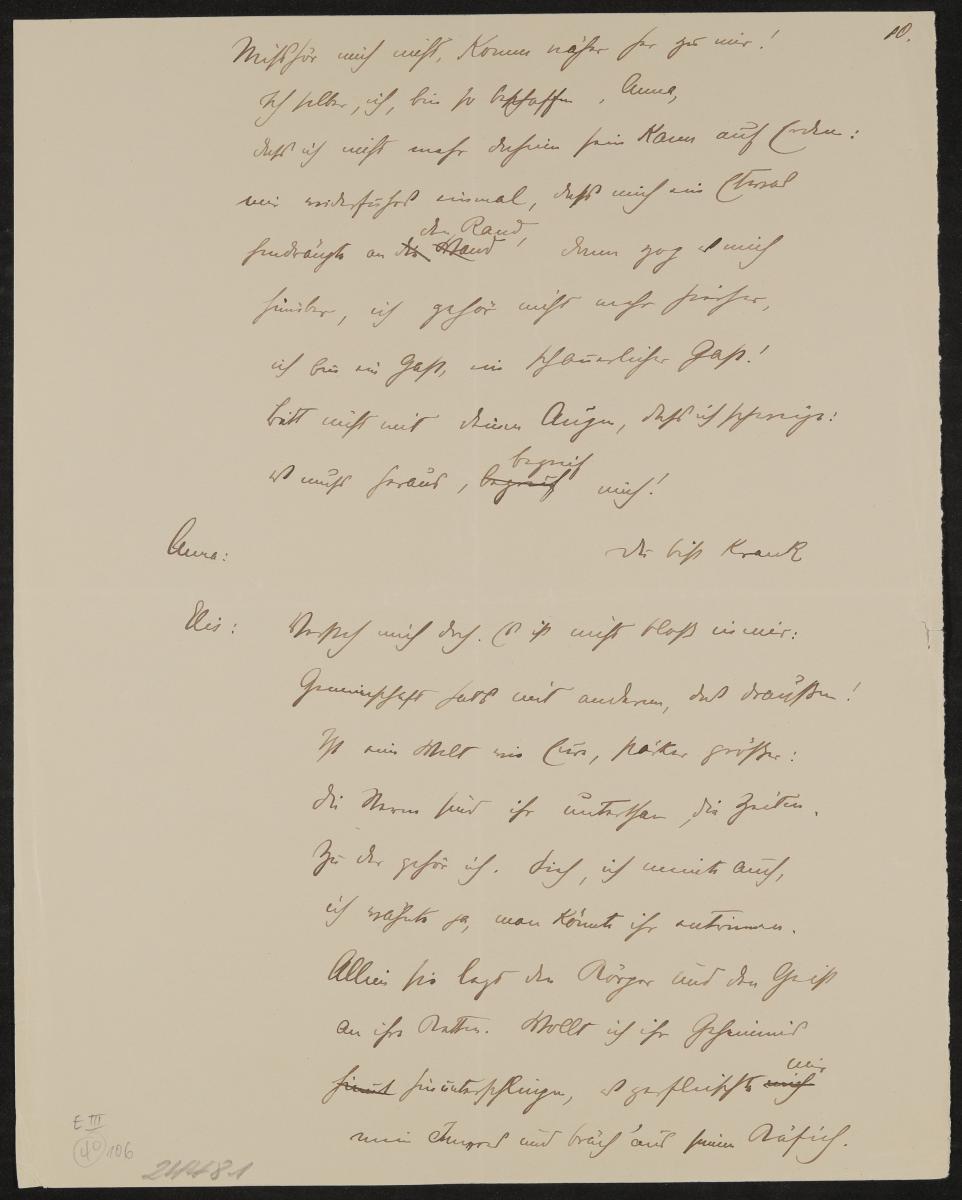 10.
Mißhör mich nicht. Komm näher her zu mir!
Ich selber, ich, bin so beschaffen, Anna,
daß ich nicht mehr daheim sein kann auf Erden:
mir widerfuhrs einmal, daß mich ein Etwas
den Rand,
hindrängte an die Wand, dann zog es mich
hinüber, ich gehör nicht mehr hierher,
ich bin ein Gast, ein schauerlicher Gast!
Bitt nicht mit deinen Augen, daß ich schweige:
begreif
es muß heraus, begreif mich!
Anna: Du bist krank
Elis: Versteh mich doch. Es ist nicht bloß in mir:
Gemeinschaft hats mit anderem, das draußen!
Ist eine Welt wie Eure, stärker größer:
die Namen sind ihr unterthan, die Zeiten.
Zu der gehör ich. Sieh, ich meinte auch,
ich wähnte ja, man könnte ihr entrinnen.
Allein sie legt den Körper und den Geist
an ihre Ketten. Wollt ich ihr Geheimnis
mir
hinunt hinunterschlingen, es zerfleischte mich
mein Innres und bräch aus seinem Käfich.
E III
40 106
24481